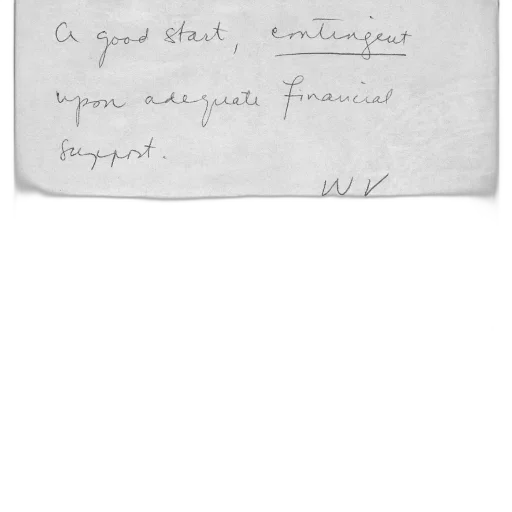 a good start, contingent
upon adequate financial
support.
WV